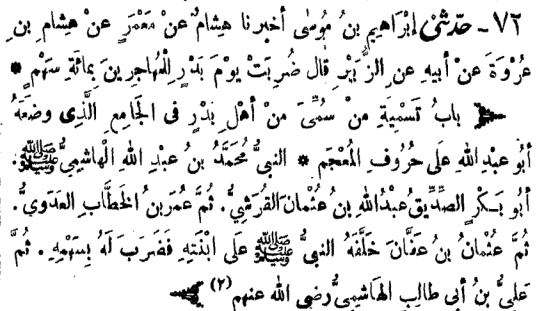 ٧٢ - حدّثنى إبْرَاهِيمُ بنُ مُوسَى أخبرنا هِشَامٌ عنْ مَعْمَرٍ عنْ هِشامِ بنِ
عُرْوَةَ عنْ أبيهِ عنِ الزُّبَيْرِ قال ضُرِبَتْ يوْمَ بَدْرٍ لِلْمُهاجِرِينَ بِمائَةِ سَهْمٍ *
بابُ تَسْمِيَةِ مَنْ سُمِّىَ منْ أهْلِ بَدْرٍ فى الجَامِعِ الَّذِى وضَعَهُ
أبُو عَبْدِ اللهِ عَلَى حُرُوفِ المُعْجَمِ * النبيُّ مُحَمَّدُ بنُ عَبْدِ اللهِ الْهاشِمِيُّ ﷺ.
أبُو بَكْرٍ الصِّدِّيقُ عَبْدُاللهِ بنُ عُثْمانَ القُرَشِيُّ. ثُمَّ عمَرُ بنُ الخَطَّابِ العَدَوِيُّ.
ثُمَّ عُثْمانُ بنُ عَفَّانَ خَلَّفَهُ النبيُّ ﷺ عَلَى ابْنَتِهِ فَضَرَبَ لَهُ بِسَهْمِهِ. ثُمَّ
عَلِيُّ بنُ أبي طالِبٍ الهَاشِمِيُّ رضي الله عنهم (٢)